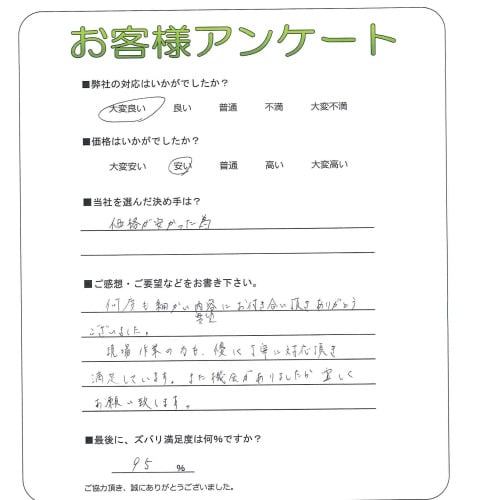 お客様アンケート
■弊社の対応はいかがでしたか？
大変良い 良い 普通 不満 大変不満
■価格はいかがでしたか？
大変安い 安い 普通 高い 大変高い
■当社を選んだ決め手は？
価格が安かった為
■ご感想・ご要望などをお書き下さい。
何度も細かい内容にお付き合い頂きありがとう
ございました。
現場作業の方も、優しく丁寧に対応頂き
満足しています。また機会がありましたら宜しく
お願い致します。
■最後に、ズバリ満足度は何%ですか？
95 %
ご協力頂き、誠にありがとうございました。